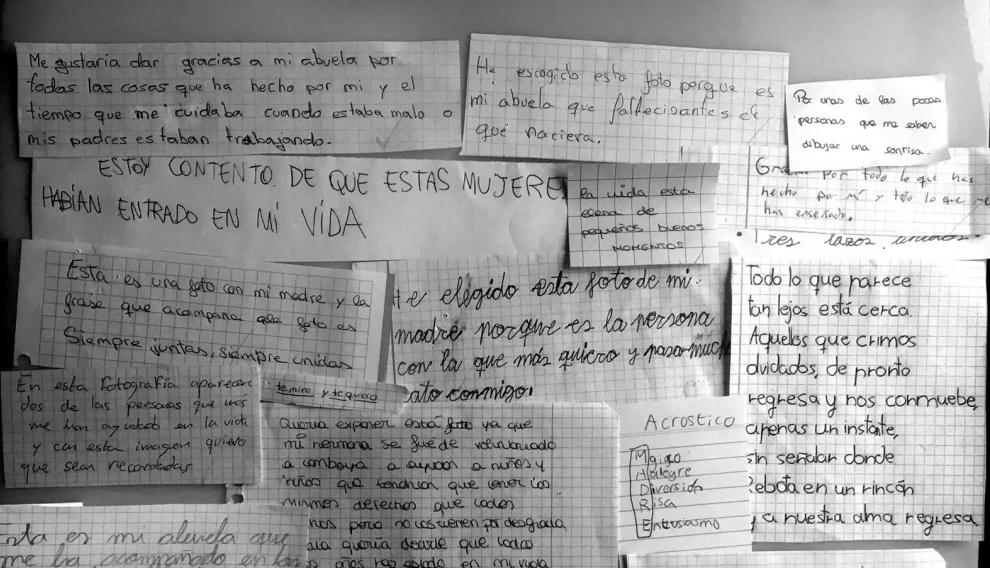 Me gustaría dar gracias a mi abuela por
todas las cosas que ha hecho por mi y el
tiempo que me cuidaba cuando estaba malo o
mis padres estaban trabajando.
He escogido esta foto porque es
mi abuela que antes
que naciera.
Por unas de las pocas
personas que me saben
dibujar una sonrisa.
ESTOY CONTENTO DE QUE ESTAS MUJERE
HABÍAN ENTRADO EN MI VÍDA
la vida esta
de
pequeños buenos
MOMENTOS
por todo lo que has
hecho por mí y todo lo que me
has enseñado.
Tres lazos unidos.
Esta es una foto con mi madre y la
frase que acompaña la foto es
Siempre juntas, siempre unidas
He elegido esta foto de mi
madre porque es la persona
con la que más quiero y pasa much
ato conmigo.
Todo lo que parece
tan lejos está cerca.
Aquellos que crimos
olvidados, de pronto
regresa y nos conmuebe,
apenas un instate,
sin señalar donde
rebota en un rincón
y a nuestra alma regresa
En esta fotografía aparecen
dos de las personas que más
me han ayudado en la vida
y con esta imagen quiero
que sean recordadas
te miro y te quiero
Quería exponer esta foto ya que
mi hermana se fue de
a camboya a ayudar a niños y
niñas que tendrían que tener los
mismos derechos que todos
pero no los tienen por desgracia
quería decirle que todos
años has estado en mi vida
Acrostico
Magico
Alegre
Diversión
Risa
Entusiasmo
Esta es mi abuela que
me ha acompañado en